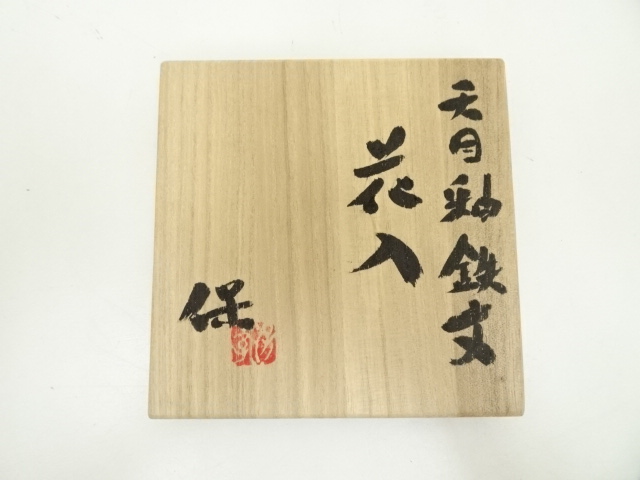 天目釉鉄文
花入
保